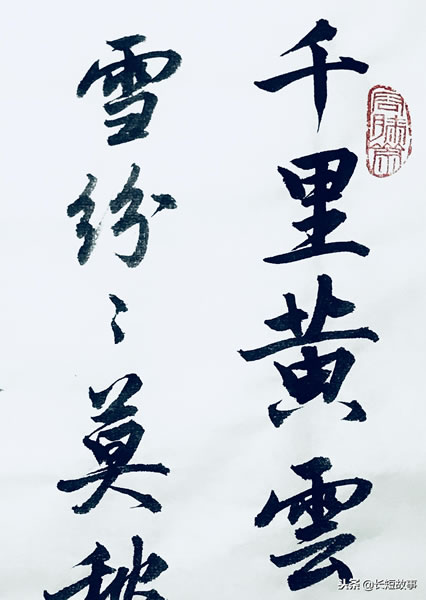 千里黄雲
雪紛〻莫
头条 @长短故事